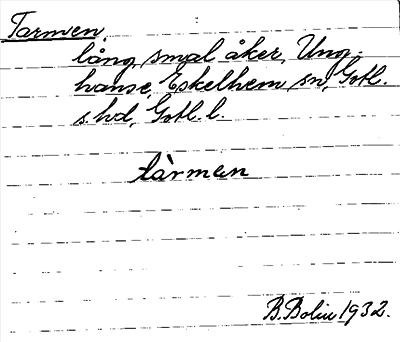 Tarmen.
lång smal åker, Ung-
hanse, Eskelhem sn, Gotl.
s hd, Gotl. l.
tàrmen
B. Bolin 1932.